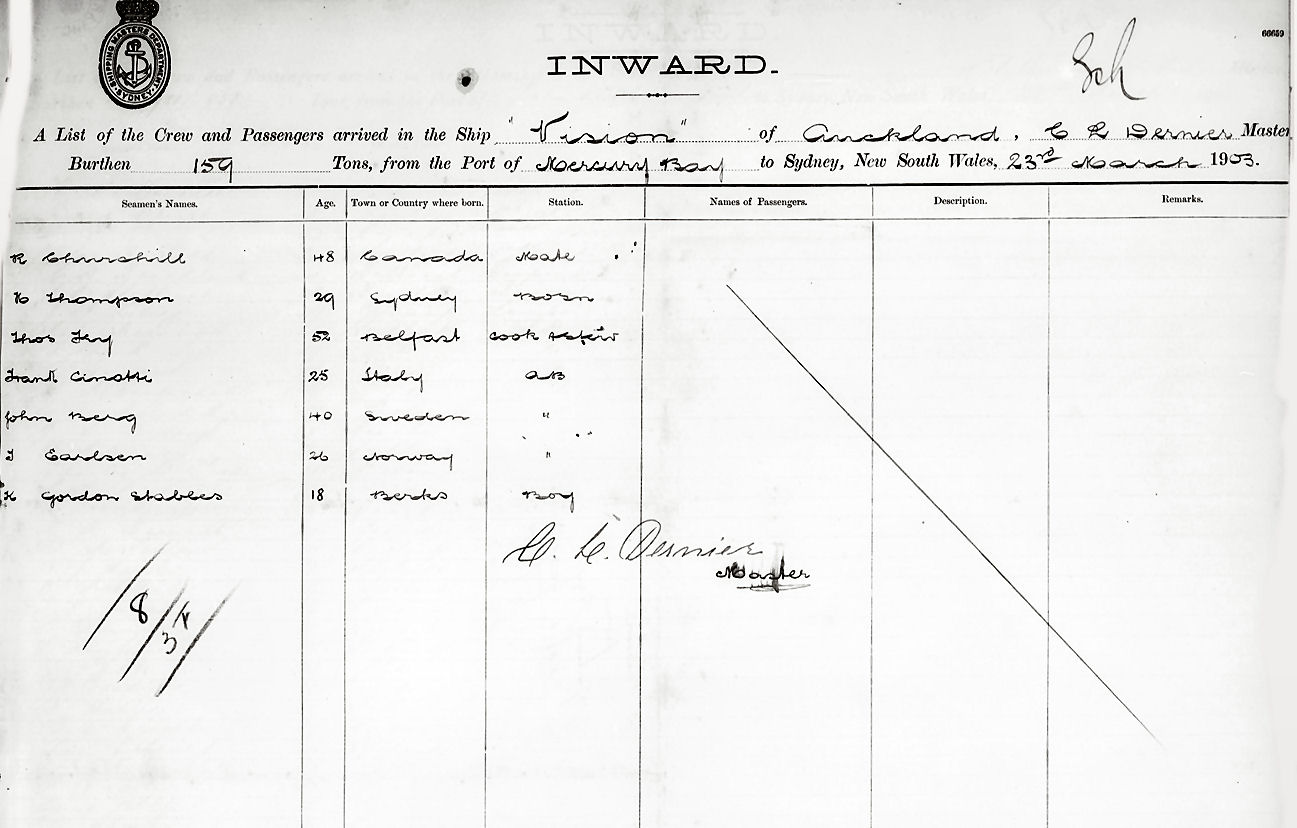 SHIPPING MASTERS DEPARTMENT SYDNEY
66659
Sch
INWARD.
A List of the Crew and Passengers arrived in the Ship "Vision" of Auckland, C L Dernier Master
Burthen 159 Tons, from the Port of Mercury Bay to Sydney, New South Wales, 23rd March 1903.
Seamen's Names. Age. Town or Country where born. Station. Names of Passengers. Description. Remarks.
R Churchill 48 Canada Mate
Thompson 29 Sydney Bosn
Thos 52 Belfast Cook & Stew
Frank Cinotti 25 Italy AB
John Berg 40 Sweden "
Earlsen 26 Norway "
H Gordon Stables 18 Berks Boy
C. L. Dernier
Master
8/